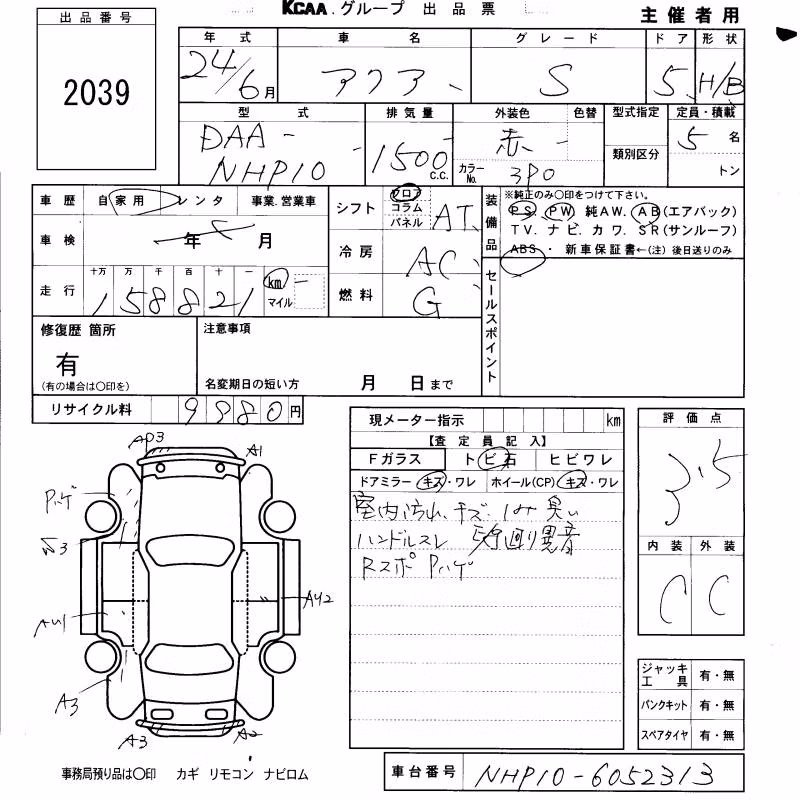 KCAA.グループ 出品票
主催者用
出品番号
2039
年式 車名 グレード ドア 形状
24/6月 アクア S 5 H/B
型式 排気量 外装色 色替 型式指定 定員・積載
DAA- NHP10 1500 C.C. 赤 カラーNo. 3P0 類別区分 5名 トン
車歴 自家用 レンタ 事業.営業車
シフト フロア コラム パネル AT
装備品 ※純正のみ〇印をつけて下さい。
PS. PW 純AW. AB(エアバック)
TV. ナビ. カワ. SR(サンルーフ)
ABS・ 新車保証書←(注) 後日送りのみ
車検 年 月
冷房 AC
走行 十万 万 千 百 十 一 km マイル
158821
燃料 G
セールスポイント
修復歴 箇所
有
(有の場合は〇印を)
注意事項
名変期日の短い方 月 日まで
リサイクル料 9880円
現メーター指示 km
【査定員記入】
Fガラス トビ石 ヒビワレ
ドアミラー キズ・ワレ ホイール(CP) キズ・ワレ
室内汚れ、キズ、シミ 臭い
ハンドルスレ 異音
Rスポ Pハゲ
評価点
3.5
内装 外装
C C
AP3
A1
Pハゲ
3
AU1
AU2
A3
A3
A2
ジャッキ工具 有・無
パンクキット 有・無
スペアタイヤ 有・無
事務局預り品は〇印 カギ リモコン ナビロム
車台番号 NHP10-6052313